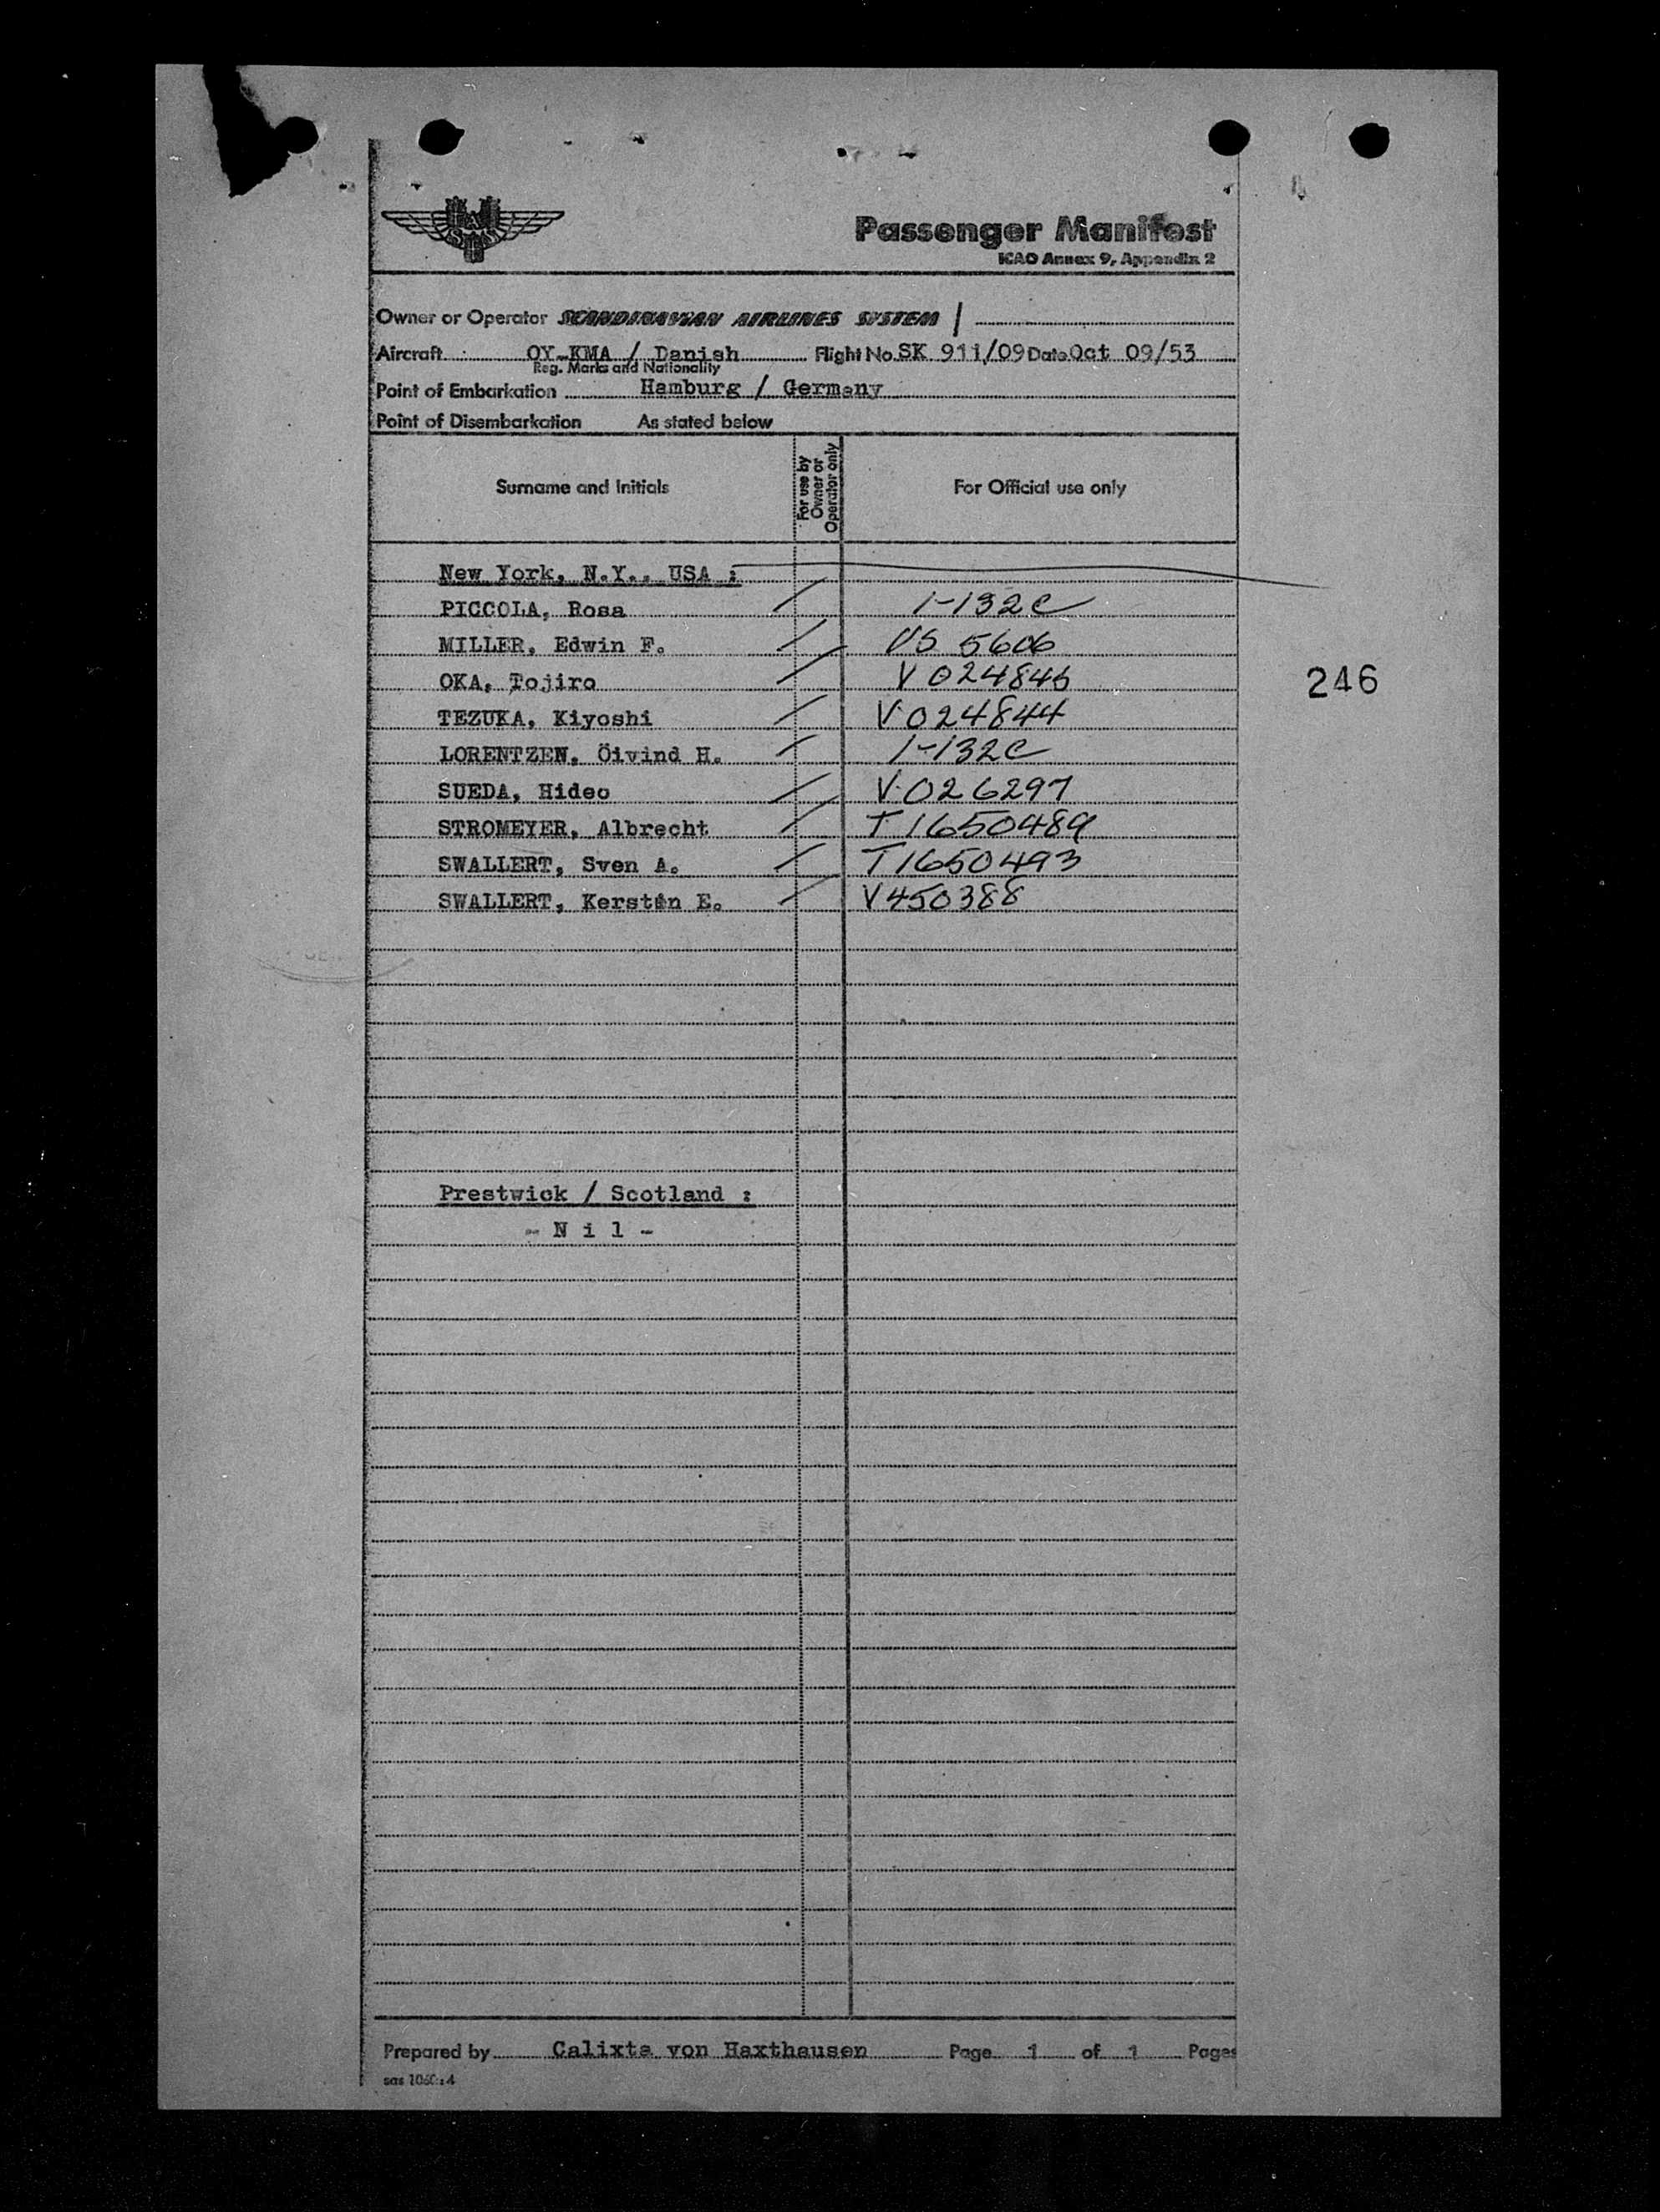 SAS
Passenger Manifest
ICAO Annex 9, Appendix 2
Owner or Operator SCANDINAVIAN AIRLINES SYSTEM /
Aircraft OY-KMA / Danish Flight No. SK 911/09 Date Oct 09/53
Reg. Marks and Nationality
Point of Embarkation Hamburg / Germany
Point of Disembarkation As stated below
Surname and Initials For use by Owner or Operator only For Official use only
New York, N.Y., USA :
PICCOLA, Rosa / 1-132C
MILLER, Edwin F. / US 5606
OKA, Tojiro / V 024846
246
TEZUKA, Kiyoshi / V 024844
LORENTZEN, Öivind H. / 1-132C
SUEDA, Hideo / V 026297
STROMEYER, Albrecht / T 1650489
SWALLERT, Sven A. / T1650493
SWALLERT, Kerstin E. / V450388
Prestwick / Scotland :
- N i l -
Prepared by Calixta von Haxthausen Page 1 of 1 Pages
sas 1060:4